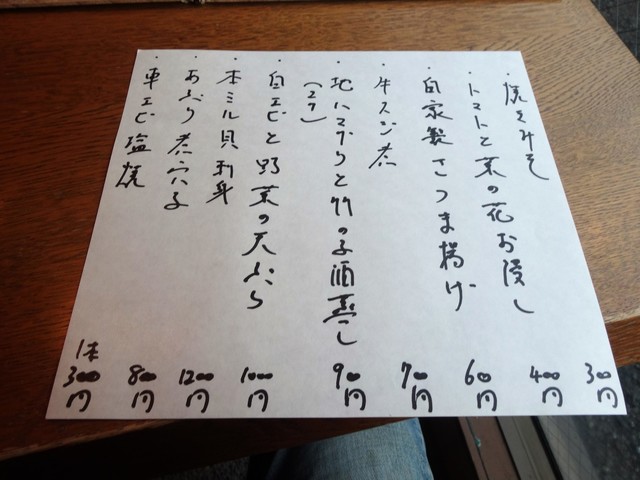 ・焼きみそ 300円
・トマトと菜の花お浸し 400円
・自家製さつま揚げ 600円
・牛スジ煮 700円
・地ハマグリと竹の子酒蒸し 900円
(2ケ)
・白エビと野菜の天ぷら 1000円
・本ミル貝刺身 1200円
・あぶり煮穴子 800円
・車エビ塩焼 1本300円